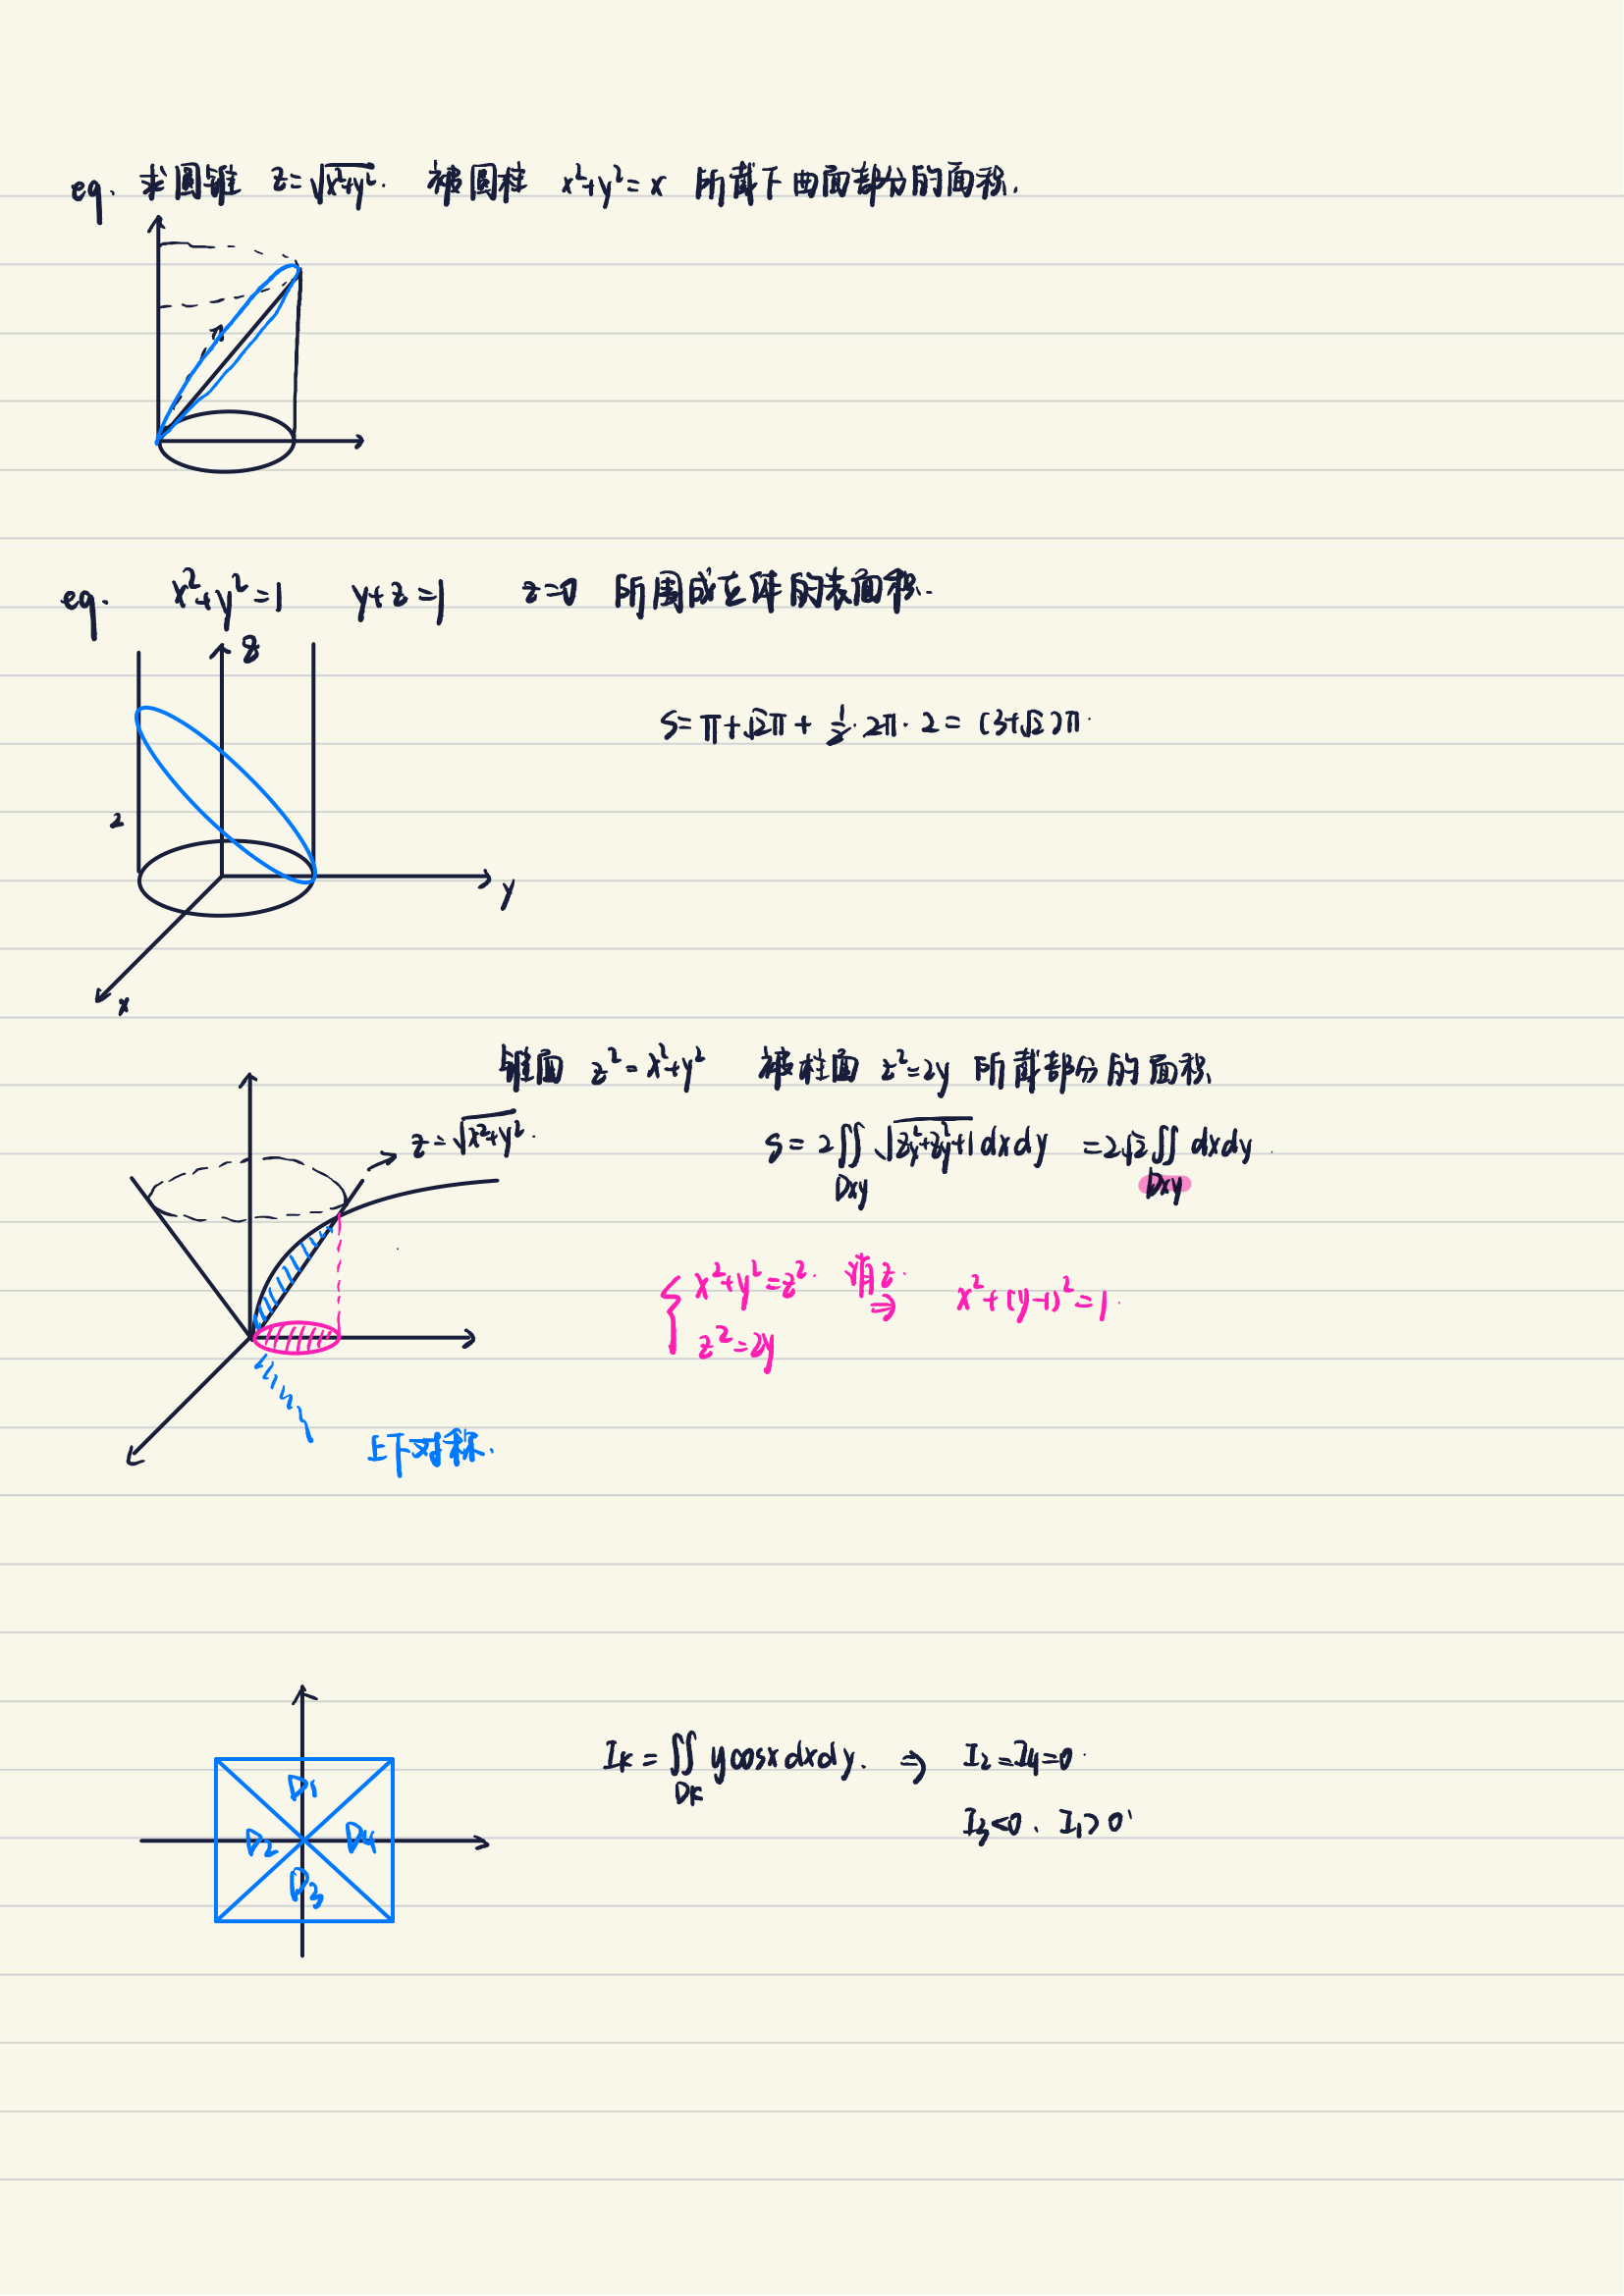 eg. 求圆锥 z=√(x²+y²). 被圆柱 x²+y²=x 所截下曲面部分的面积.
eg. x²+y²=1 y+z=1 z=0 所围成立体的表面积.
z
S=π+√2π+½·2π·2=(3+√2)π.
2
y
x
锥面 z²=x²+y² 被柱面 z²=2y 所截部分的面积.
z=√(x²+y²).
S=2∬Dxy √(zy²+zy²+1) dxdy =2√2∬Dxy dxdy.
{x²+y²=z². 消z. ⇒ x²+(y-1)²=1.
z²=2y
上下对称.
Ik=∬Dk ycosxdxdy. ⇒ I2=I4=0.
I3<0. I1>0.
D1
D2 D4
D3